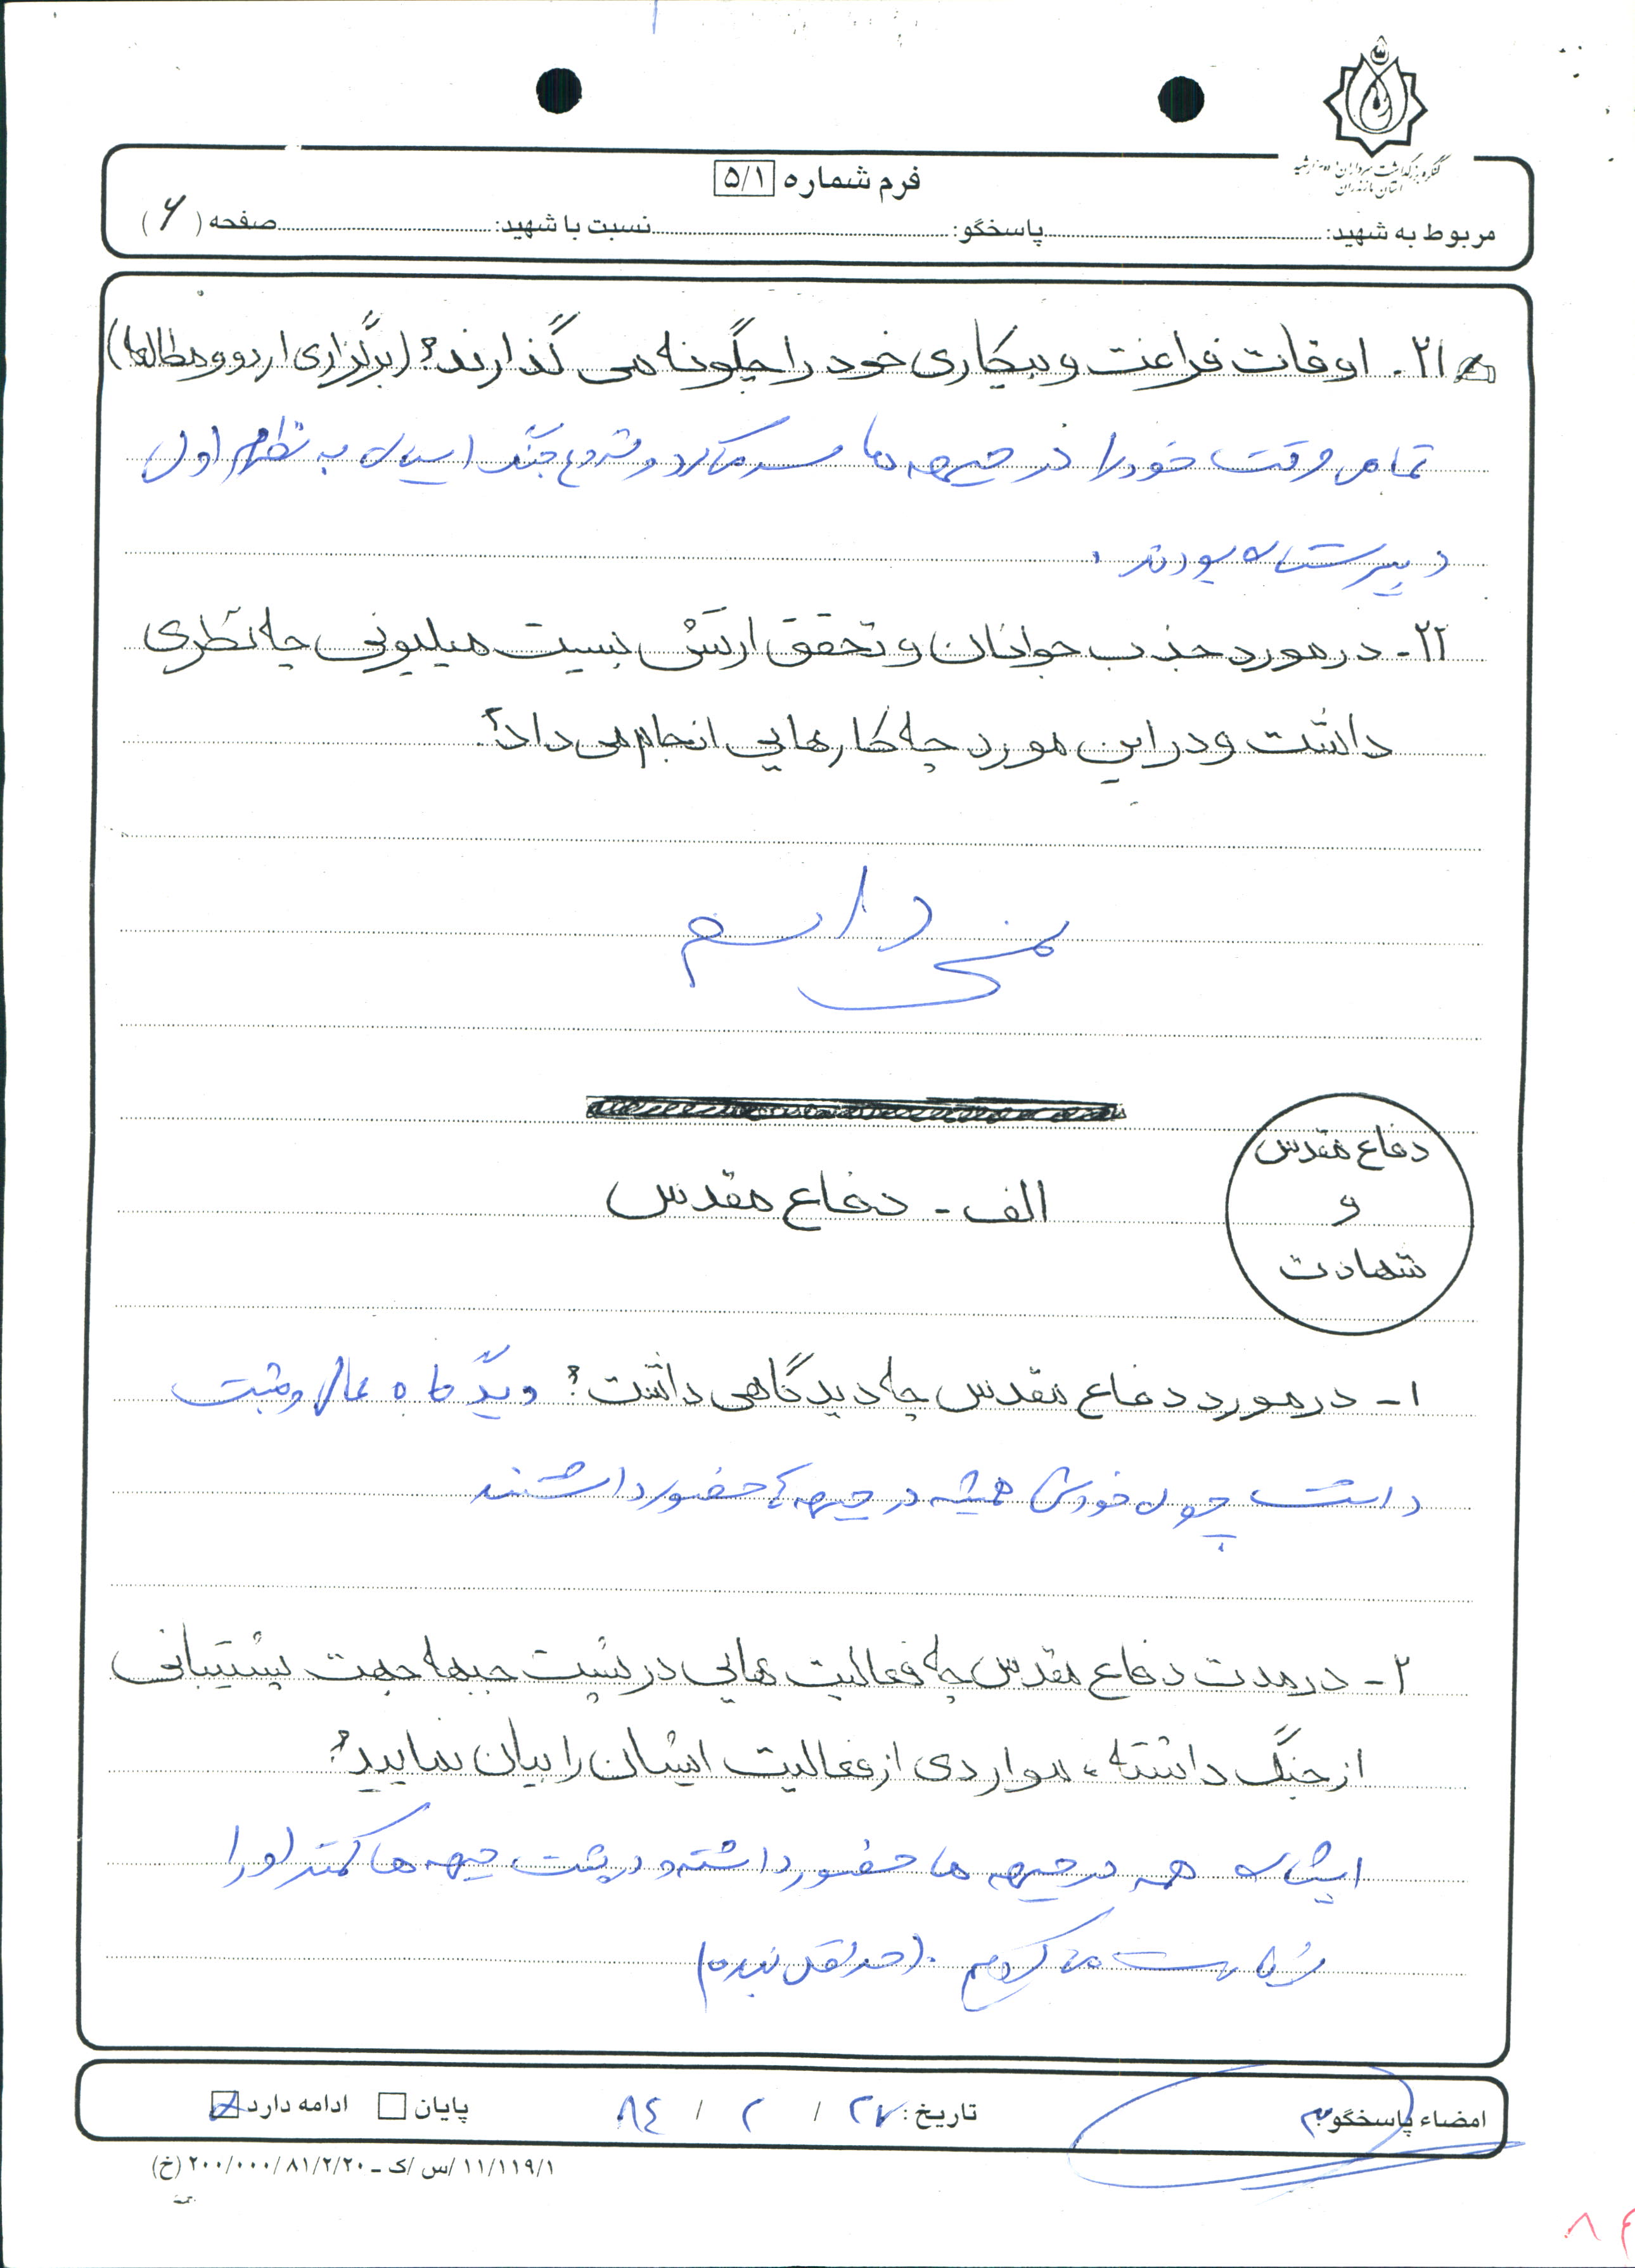 کنگره بزرگداشت سرداران و ده هزار شهید
استان مازندران
فرم شماره ۵/۱
مربوط به شهید: پاسخگو: نسبت با شهید: صفحه (۶)
۲۱. اوقات فراغت و بیکاری خود را چگونه می گذارند؟ (برگزاری اردو و مطالعه)
تمامی وقت خود را در جبهه ها سر میکرد و شروع جنگ ایشان به نظرم اول
دبیرستان بودند.
۲۲- در مورد جذب جوانان و تحقق ارتش بیست میلیونی چه نظری
داشت و در این مورد چه کارهایی انجام می داد؟
نمی دانم
دفاع مقدس
و
شهادت
الف - دفاع مقدس
۱- در مورد دفاع مقدس چه دیدگاهی داشت؟ دیدگاه عالی و مثبت
داشت چون خودش همیشه در جبهه ها حضور داشتند
۲- در مدت دفاع مقدس چه فعالیت هایی در پشت جبهه جهت پشتیبانی
از جنگ داشته، مواردی از فعالیت ایشان را بیان نمایید؟
ایشان همه در جبهه ها حضور داشته و در پشت جبهه ها کمتر او را
زیارت می کردیم. (حداقل نبوده)
امضاء پاسخگو: تاریخ: ۲۷ / ۲ / ۸۴ پایان ادامه دارد
۱۱/۱۱۹/۱ /س /ک ـ ۲۰۰/۰۰۰/ ۸۱/۲/۲۰ (خ)